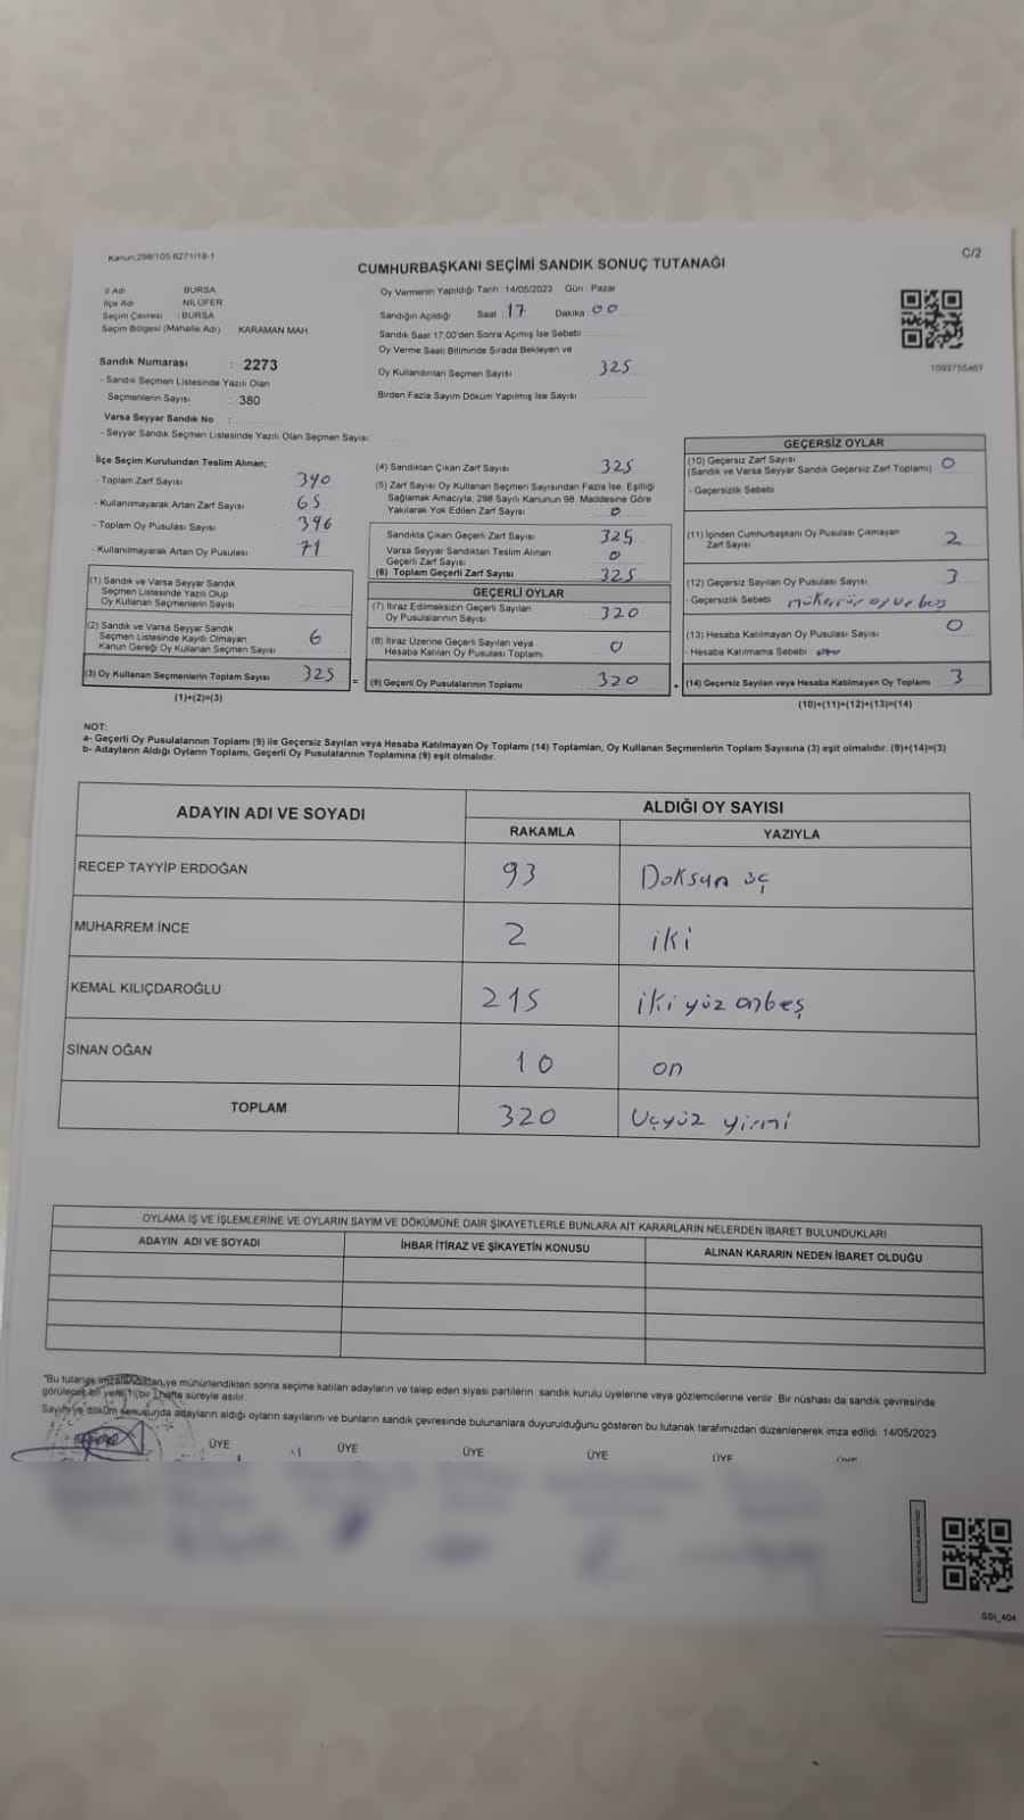 Kanun:298/105 6271/18-1
C/2
CUMHURBAŞKANI SEÇİMİ SANDIK SONUÇ TUTANAĞI
İl Adı : BURSA
İlçe Adı : NİLÜFER
Seçim Çevresi : BURSA
Seçim Bölgesi (Mahalle Adı) KARAMAN MAH.
Sandık Numarası : 2273
- Sandık Seçmen Listesinde Yazılı Olan
Seçmenlerin Sayısı : 380
Varsa Seyyar Sandık No :
- Seyyar Sandık Seçmen Listesinde Yazılı Olan Seçmen Sayısı:
Oy Vermenin Yapıldığı Tarih : 14/05/2023 Gün : Pazar
Sandığın Açıldığı Saat : 17 Dakika : 00
Sandık Saat 17:00'den Sonra Açılmış İse Sebebi
Oy Verme Saati Bitiminde Sırada Bekleyen ve
Oy Kullandırılan Seçmen Sayısı 325
Birden Fazla Sayım Döküm Yapılmış İse Sayısı
1093755467
İlçe Seçim Kurulundan Teslim Alınan;
- Toplam Zarf Sayısı 390
- Kullanılmayarak Artan Zarf Sayısı 65
- Toplam Oy Pusulası Sayısı 396
- Kullanılmayarak Artan Oy Pusulası 71
(1) Sandık ve Varsa Seyyar Sandık
Seçmen Listesinde Yazılı Olup
Oy Kullanan Seçmenlerin Sayısı
(2) Sandık ve Varsa Seyyar Sandık
Seçmen Listesinde Kaydı Olmayan
Kanun Gereği Oy Kullanan Seçmen Sayısı 6
(3) Oy Kullanan Seçmenlerin Toplam Sayısı 325
(1)+(2)=(3)
(4) Sandıktan Çıkan Zarf Sayısı 325
(5) Zarf Sayısı Oy Kullanan Seçmen Sayısından Fazla İse, Eşitliği
Sağlamak Amacıyla, 298 Sayılı Kanunun 98. Maddesine Göre
Yakılarak Yok Edilen Zarf Sayısı 0
Sandıkta Çıkan Geçerli Zarf Sayısı 325
Varsa Seyyar Sandıktan Teslim Alınan
Geçerli Zarf Sayısı 0
(6) Toplam Geçerli Zarf Sayısı 325
GEÇERLİ OYLAR
(7) İtiraz Edilmeksizin Geçerli Sayılan
Oy Pusulalarının Sayısı 320
(8) İtiraz Üzerine Geçerli Sayılan veya
Hesaba Katılan Oy Pusulası Toplamı 0
= (9) Geçerli Oy Pusulalarının Toplamı 320
GEÇERSİZ OYLAR
(10) Geçersiz Zarf Sayısı
(Sandık ve Varsa Seyyar Sandık Geçersiz Zarf Toplamı) 0
- Geçersizlik Sebebi
(11) İçinden Cumhurbaşkanı Oy Pusulası Çıkmayan
Zarf Sayısı 2
(12) Geçersiz Sayılan Oy Pusulası Sayısı 3
- Geçersizlik Sebebi mükerrür oy ve boş
(13) Hesaba Katılmayan Oy Pusulası Sayısı 0
- Hesaba Katılmama Sebebi
+ (14) Geçersiz Sayılan veya Hesaba Katılmayan Oy Toplamı 3
(10)+(11)+(12)+(13)=(14)
NOT:
a- Geçerli Oy Pusulalarının Toplamı (9) ile Geçersiz Sayılan veya Hesaba Katılmayan Oy Toplamı (14) Toplamları, Oy Kullanan Seçmenlerin Toplam Sayısına (3) eşit olmalıdır. (9)+(14)=(3)
b- Adayların Aldığı Oyların Toplamı, Geçerli Oy Pusulalarının Toplamına (9) eşit olmalıdır.
ADAYIN ADI VE SOYADI ALDIĞI OY SAYISI
RAKAMLA YAZIYLA
RECEP TAYYİP ERDOĞAN 93 Doksan üç
MUHARREM İNCE 2 iki
KEMAL KILIÇDAROĞLU 215 iki yüz onbeş
SİNAN OĞAN 10 on
TOPLAM 320 Üçyüz yirmi
OYLAMA İŞ VE İŞLEMLERİNE VE OYLARIN SAYIM VE DÖKÜMÜNE DAİR ŞİKAYETLERLE BUNLARA AİT KARARLARIN NELERDEN İBARET BULUNDUKLARI
ADAYIN ADI VE SOYADI İHBAR İTİRAZ VE ŞİKAYETİN KONUSU ALINAN KARARIN NEDEN İBARET OLDUĞU
"Bu tutanak imzalandıktan ve mühürlendikten sonra seçime katılan adayların ve talep eden siyasi partilerin sandık kurulu üyelerine veya gözlemcilerine verilir. Bir nüshası da sandık çevresinde
görülecek bir yere 1(bir) hafta süreyle asılır.
Sayım ve döküm sonucunda adayların aldığı oyların sayılarını ve bunların sandık çevresinde bulunanlara duyurulduğunu gösteren bu tutanak tarafımızdan düzenlenerek imza edildi. 14/05/2023
ÜYE ÜYE ÜYE ÜYE ÜYE
SSI_404